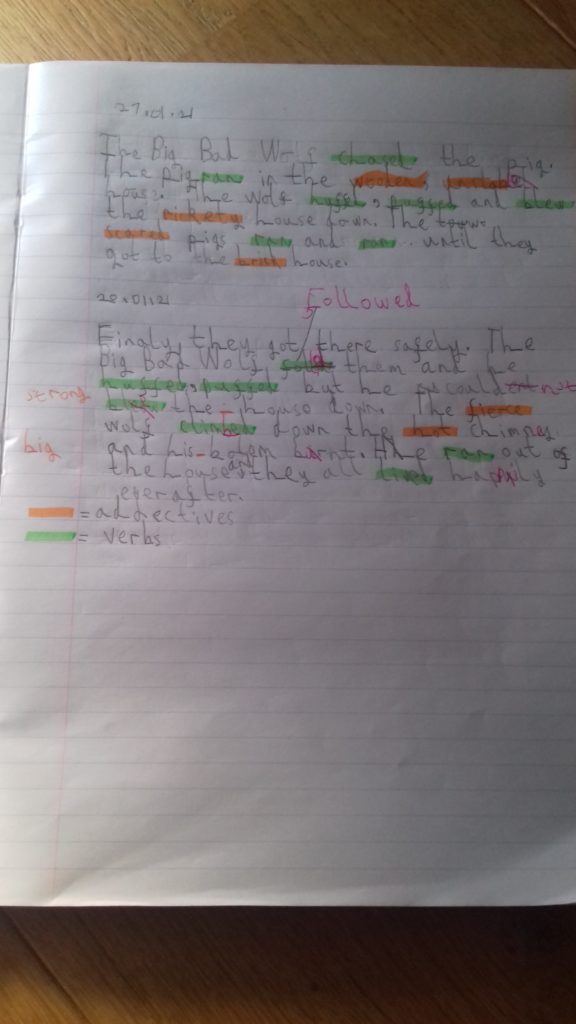 27.01.21
The Big Bad Wolf chased the pig.
The pig ran in the wooden, unstable
house. The wolf huffed, puffed and blew
the rickety house down. The
scared pigs ran and ran.. until they
got to the brick house.
28.01.21
Followed
Finaly, they got there safely. The
big bad Wolf them and he
huffed, puffed but he couldnt
strong the house down. The fierce
wolf climbed down the hot chimney
big and his bottom burnt. He ran out of
the house and they all lived happily
ever after.
= adjectives
= verbs